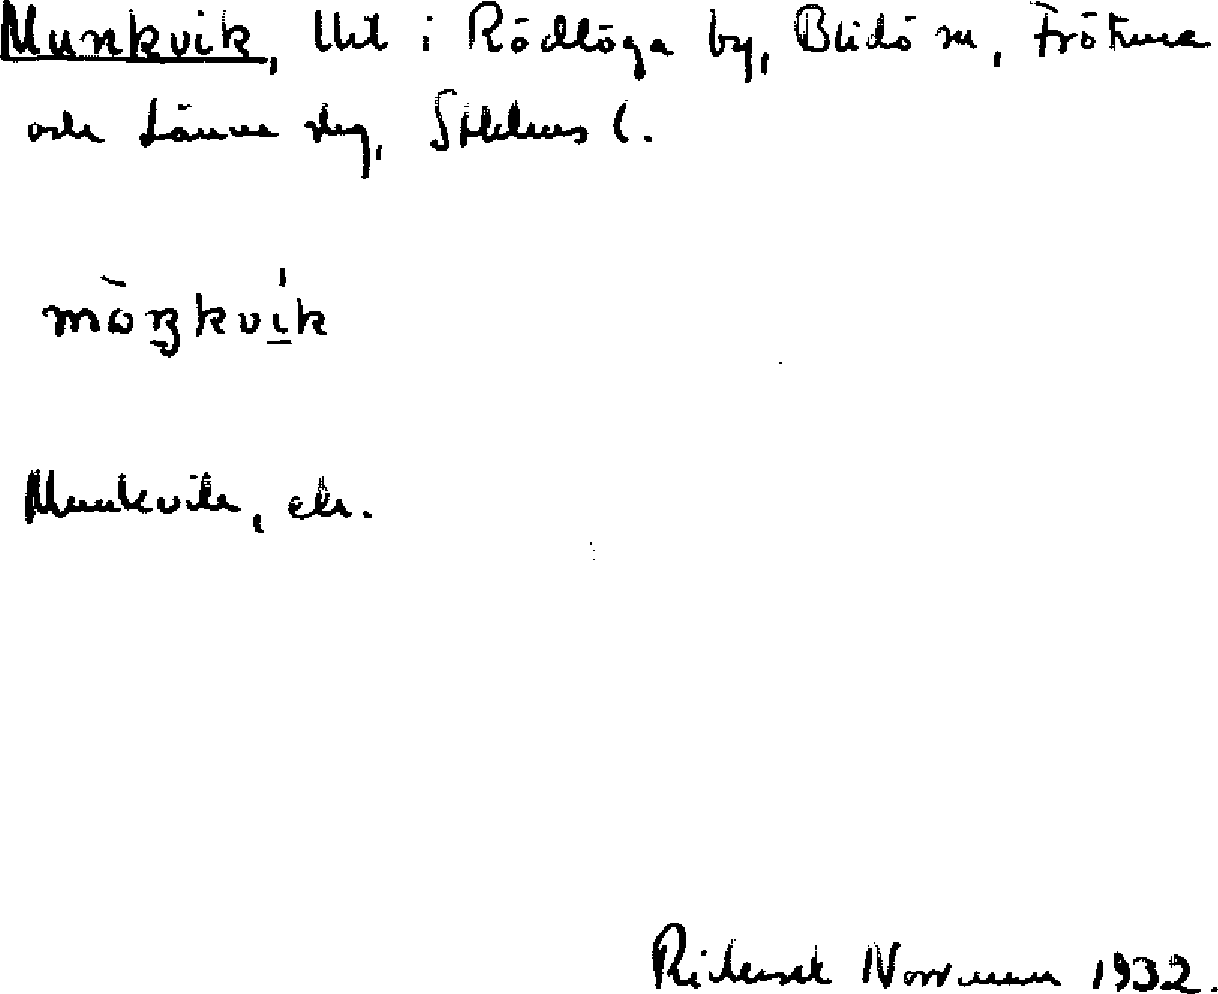 Munkvik, Utl i Rödlöga by, Blidö sn, Frötuna
och Länna slg, Sthlms l.
mòŋkvìk
Munkviken, ek.
Rickard Norrman 1932.